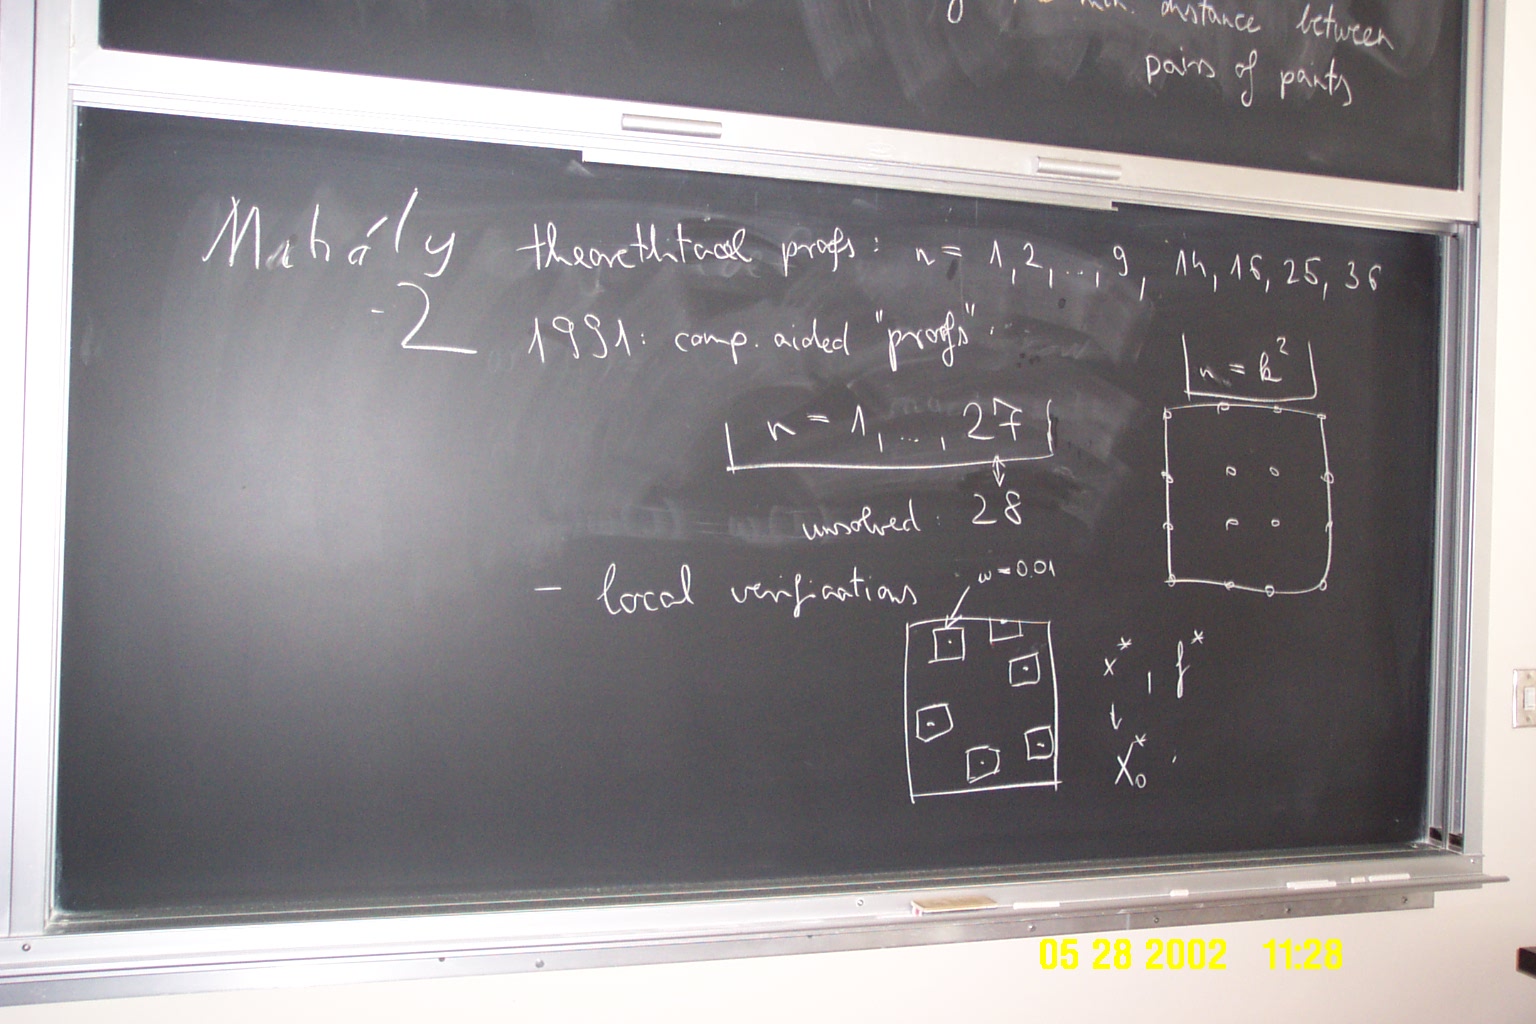 min. distance between
pairs of points
Mihály
-2
theorethitacal proofs: n = 1, 2, ..., 9, 14, 16, 25, 36
1991: comp. aided "proofs":
n = k²
n = 1, ..., 27
unsolved: 28
- local verifications
w = 0.01
x*, f*
↓
X₀*
05 28 2002 11:28